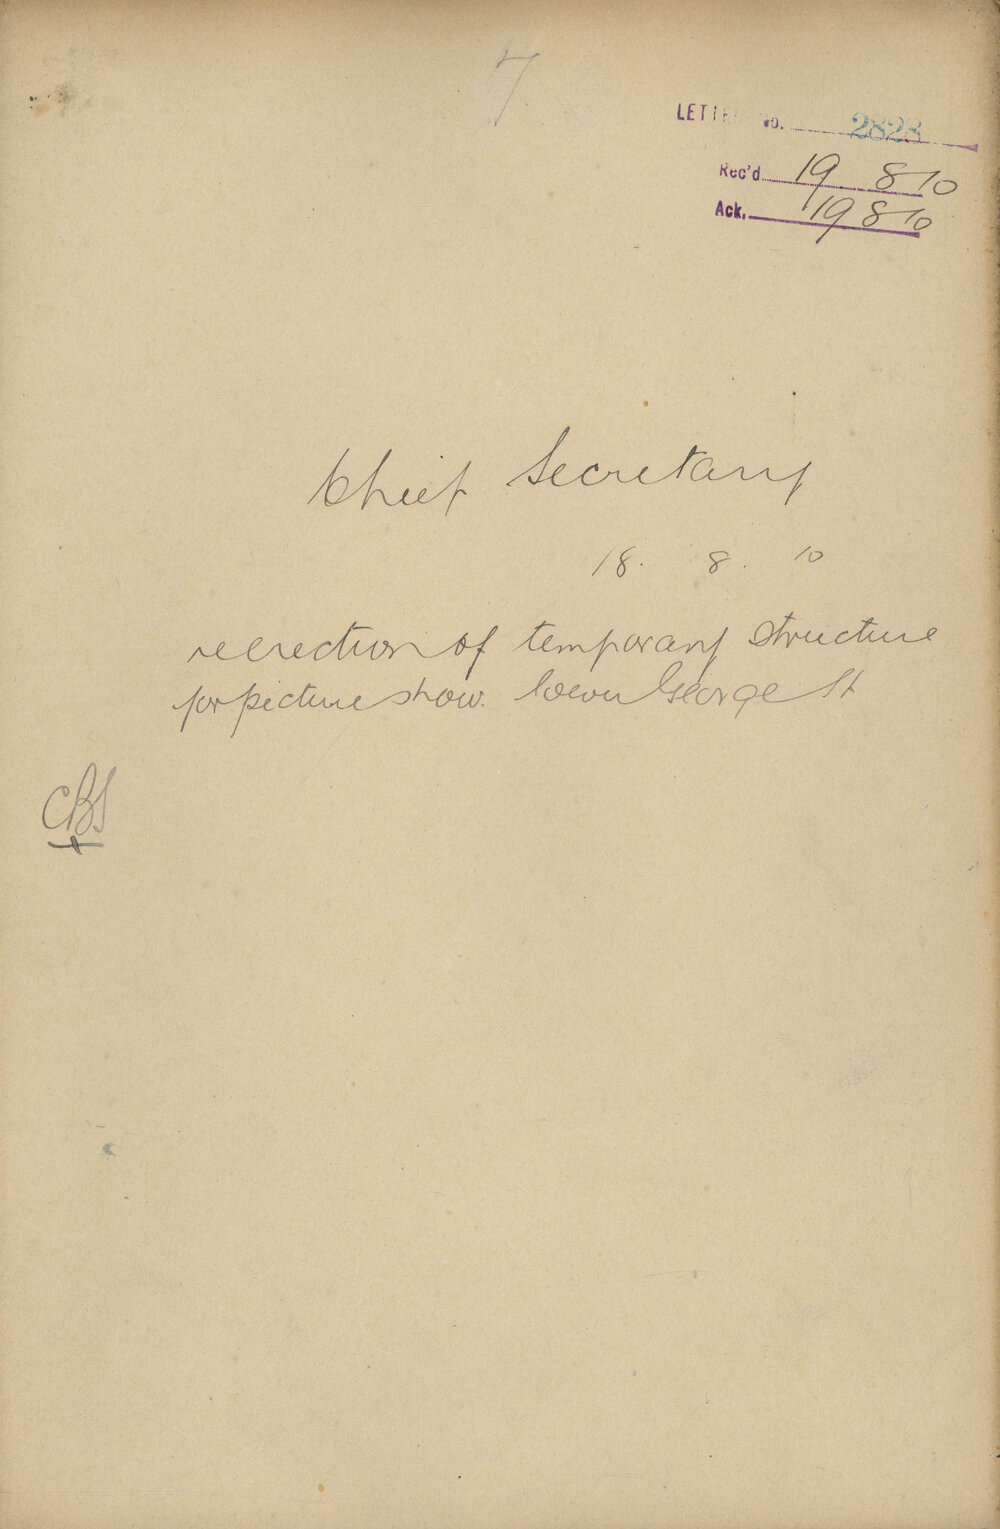 7
LETTER No. 2823
Rec'd 19 8 10
Ack. 19 8 10
Chief Secretary
18. 8. 10
re erection of temporary structure
for picture show. lower George St
CBS